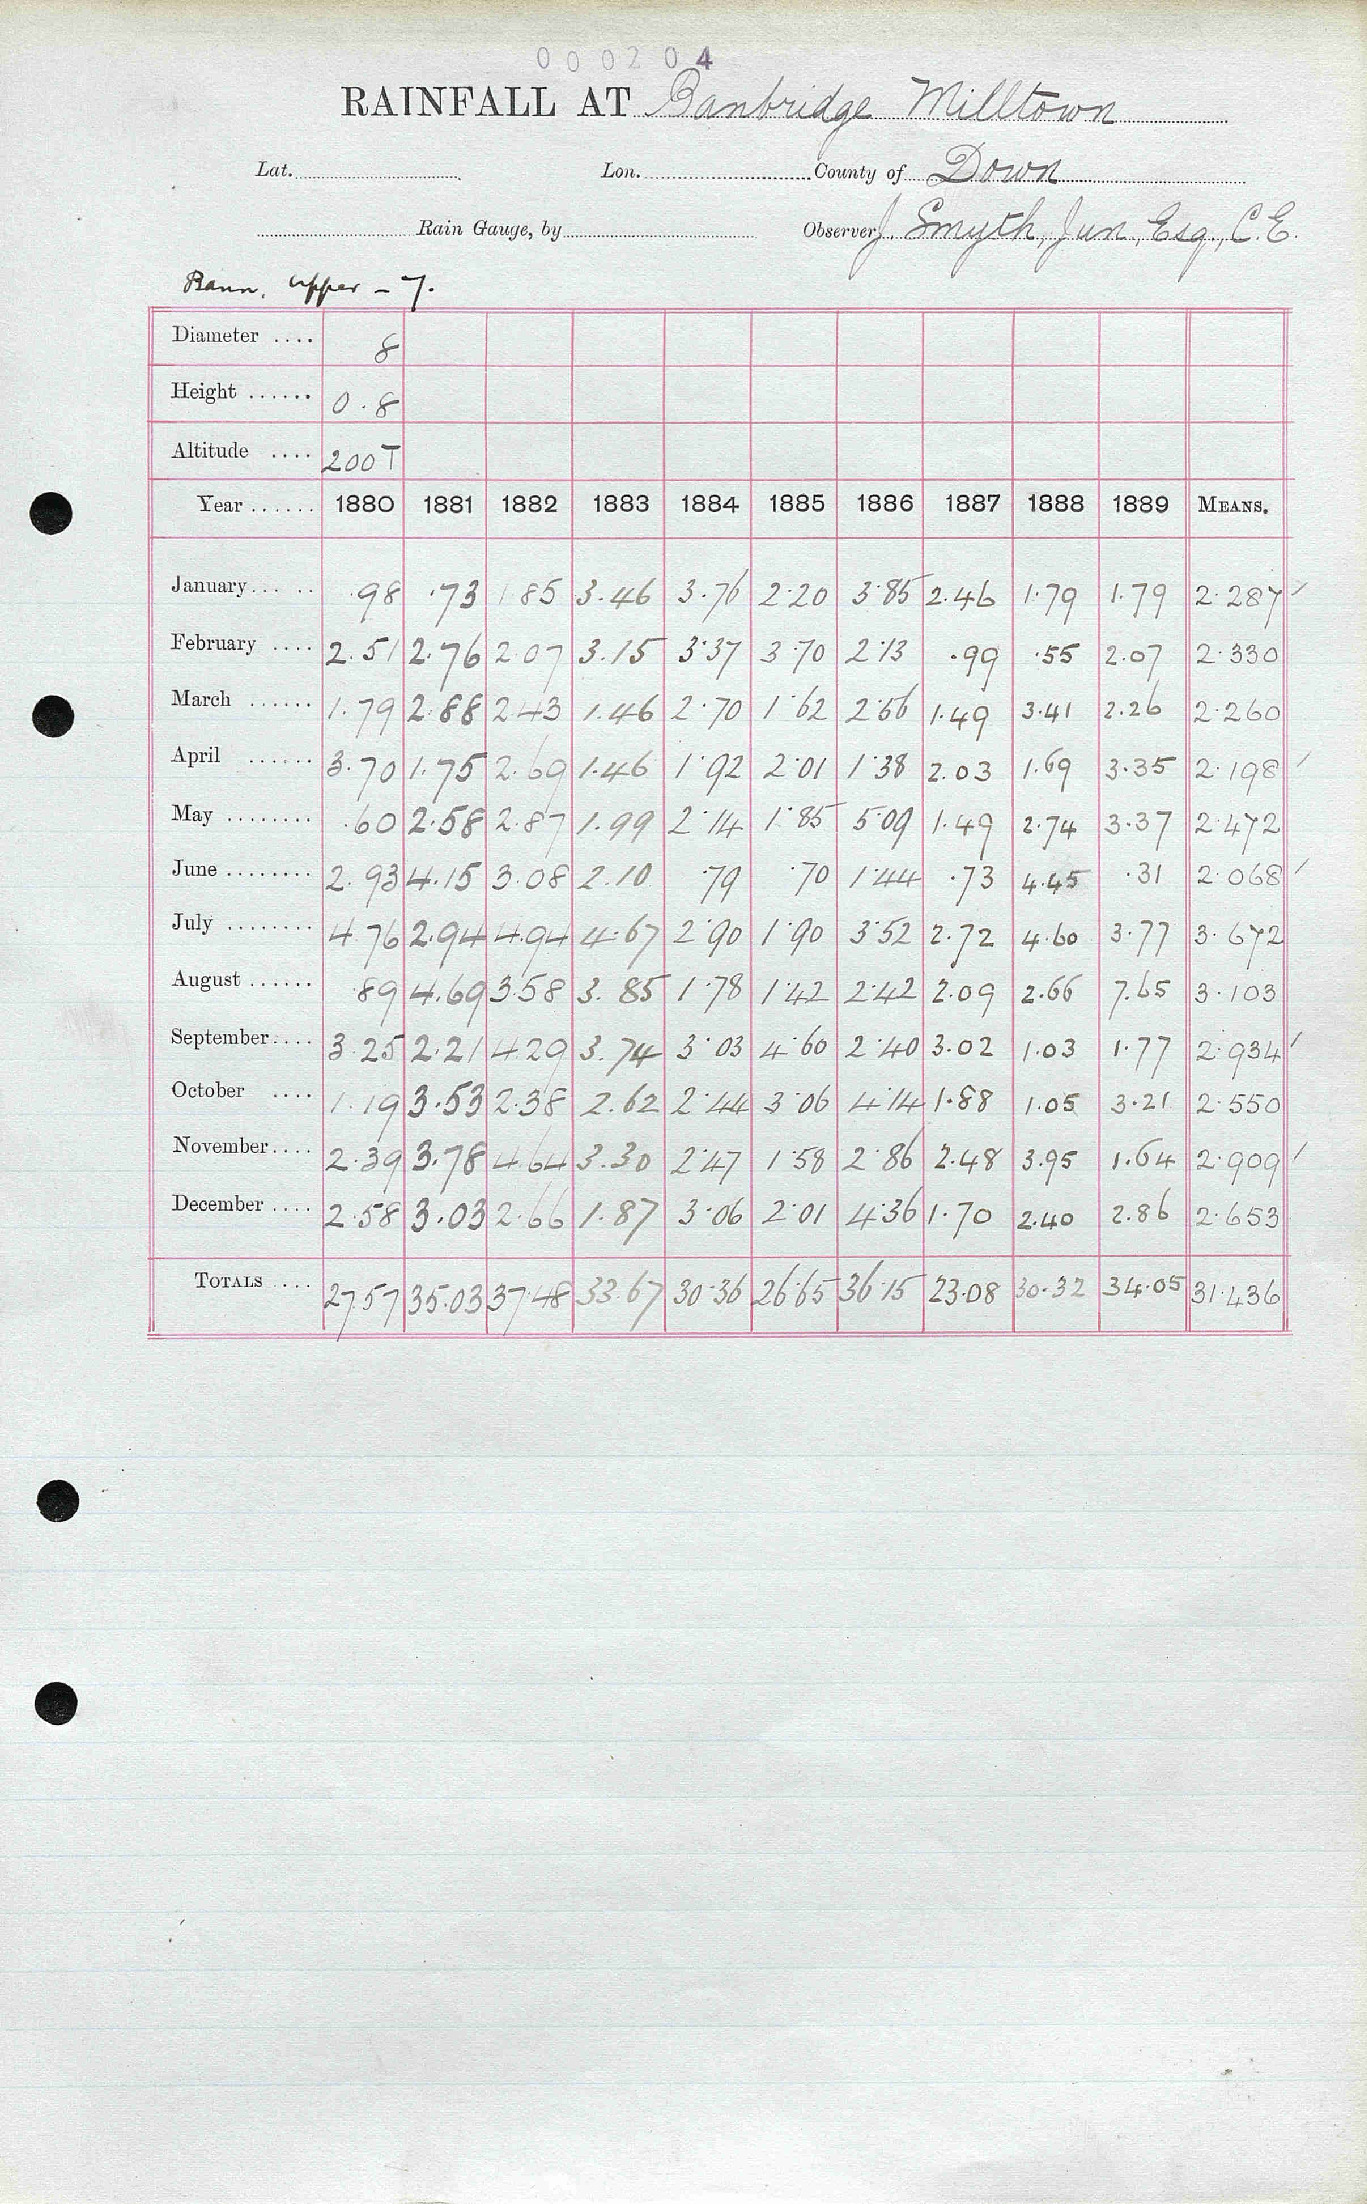 000204
RAINFALL AT Banbridge Milltown
Lat. Lon. County of Down
Rain Gauge, by Observer J. Smyth, Jun, Esq., C.E.
Bann, Upper - 7.
Diameter .... 8
Height ...... 0.8
Altitude .... 200T
Year ...... 1880 1881 1882 1883 1884 1885 1886 1887 1888 1889 MEANS.
January ..... .98 .73 1.85 3.46 3.76 2.20 3.85 2.46 1.79 1.79 2.287
February .... 2.51 2.76 2.07 3.15 3.37 3.70 2.13 .99 .55 2.07 2.330
March ...... 1.79 2.88 2.43 1.46 2.70 1.62 2.56 1.49 3.41 2.26 2.260
April ...... 3.70 1.75 2.69 1.46 1.92 2.01 1.38 2.03 1.69 3.35 2.198
May ........ .60 2.58 2.87 1.99 2.14 1.85 5.09 1.49 2.74 3.37 2.472
June ........ 2.93 4.15 3.08 2.10 .79 .70 1.44 .73 4.45 .31 2.068
July ........ 4.76 2.94 4.94 4.67 2.90 1.90 3.52 2.72 4.60 3.77 3.672
August ...... .89 4.69 3.58 3.85 1.78 1.42 2.42 2.09 2.66 7.65 3.103
September .... 3.25 2.21 4.29 3.74 3.03 4.60 2.40 3.02 1.03 1.77 2.934
October .... 1.19 3.53 2.38 2.62 2.44 3.06 4.14 1.88 1.05 3.21 2.550
November .... 2.39 3.78 4.64 3.30 2.47 1.58 2.86 2.48 3.95 1.64 2.909
December .... 2.58 3.03 2.66 1.87 3.06 2.01 4.36 1.70 2.40 2.86 2.653
TOTALS .... 27.57 35.03 37.48 33.67 30.36 26.65 36.15 23.08 30.32 34.05 31.436